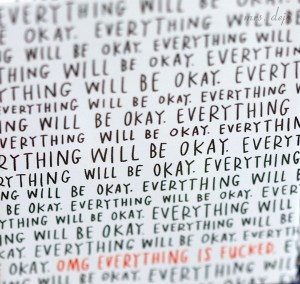 BE OKAY. EVERYTHING WILL BE
OKAY. EVERYTHING WILL BE OKAY.
THING WILL BE OKAY. EVERYTHING
WILL BE OKAY. EVERYTHING WILL
EVERYTHING WILL BE OKAY. EVERYTHING
THING WILL BE OKAY. EVERYTHING
WILL BE OKAY. EVERYTHING
ERYTHING WILL BE OKAY. EVERYTHING
THING WILL BE OKAY. EVERYTHING WILL
BE OKAY. EVERYTHING WILL BE OKAY.
YTHING WILL BE OKAY. EVERYTHING
WILL BE OKAY. EVERYTHING WILL BE
OKAY. EVERYTHING WILL BE OKAY.
OKAY. OMG EVERYTHING IS FUCKED.